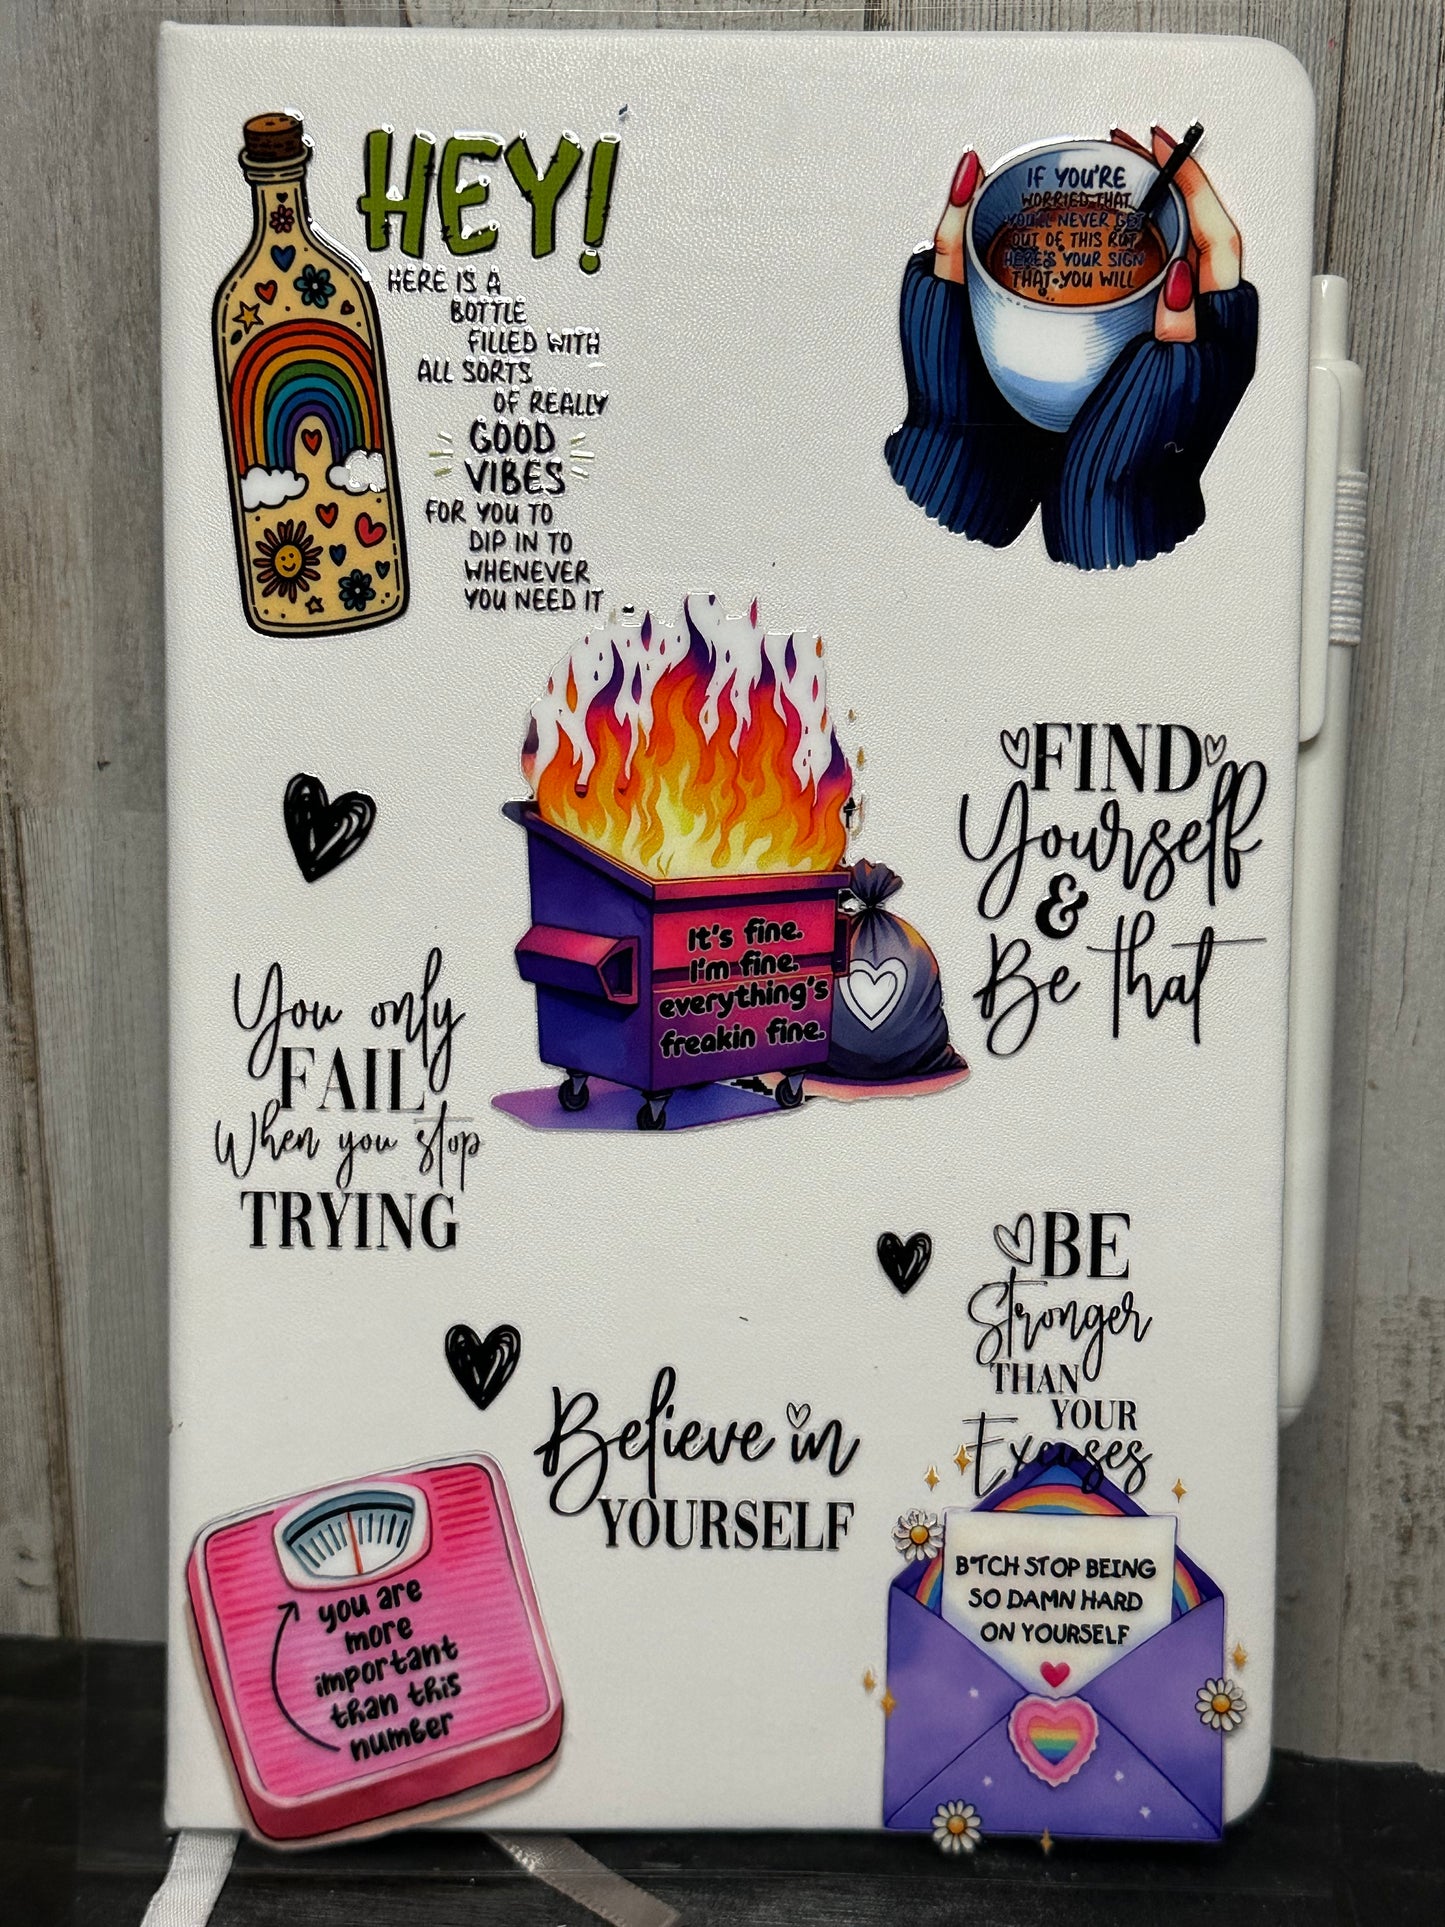 HEY!
HERE IS A
BOTTLE
FILLED WITH
ALL SORTS
OF REALLY
GOOD
VIBES
FOR YOU TO
DIP IN TO
WHENEVER
YOU NEED IT
IF YOU'RE
WORRIED THAT
YOU'LL NEVER GET
OUT OF THIS RUT
HERE'S YOUR SIGN
THAT YOU WILL
It's fine.
I'm fine.
everything's
freakin fine.
FIND
Yourself
&
Be that
You only
FAIL
When you stop
TRYING
BE
Stronger
THAN
YOUR
Excuses
Believe in
YOURSELF
you are
more
important
than this
number
B*TCH STOP BEING
SO DAMN HARD
ON YOURSELF